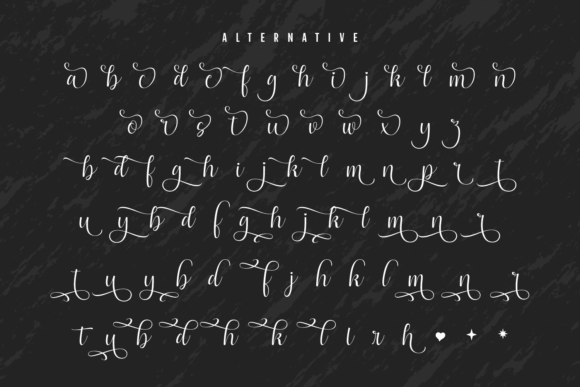 ALTERNATIVE
a b c d e f g h i j k l m n
o r s t u v w x y z
b d f g h i j k l m n p r t
u y b d f g h j k l m n r
t u y b d f j h k l m n r
t u b d h k l l r h ♥ ✦ ✷